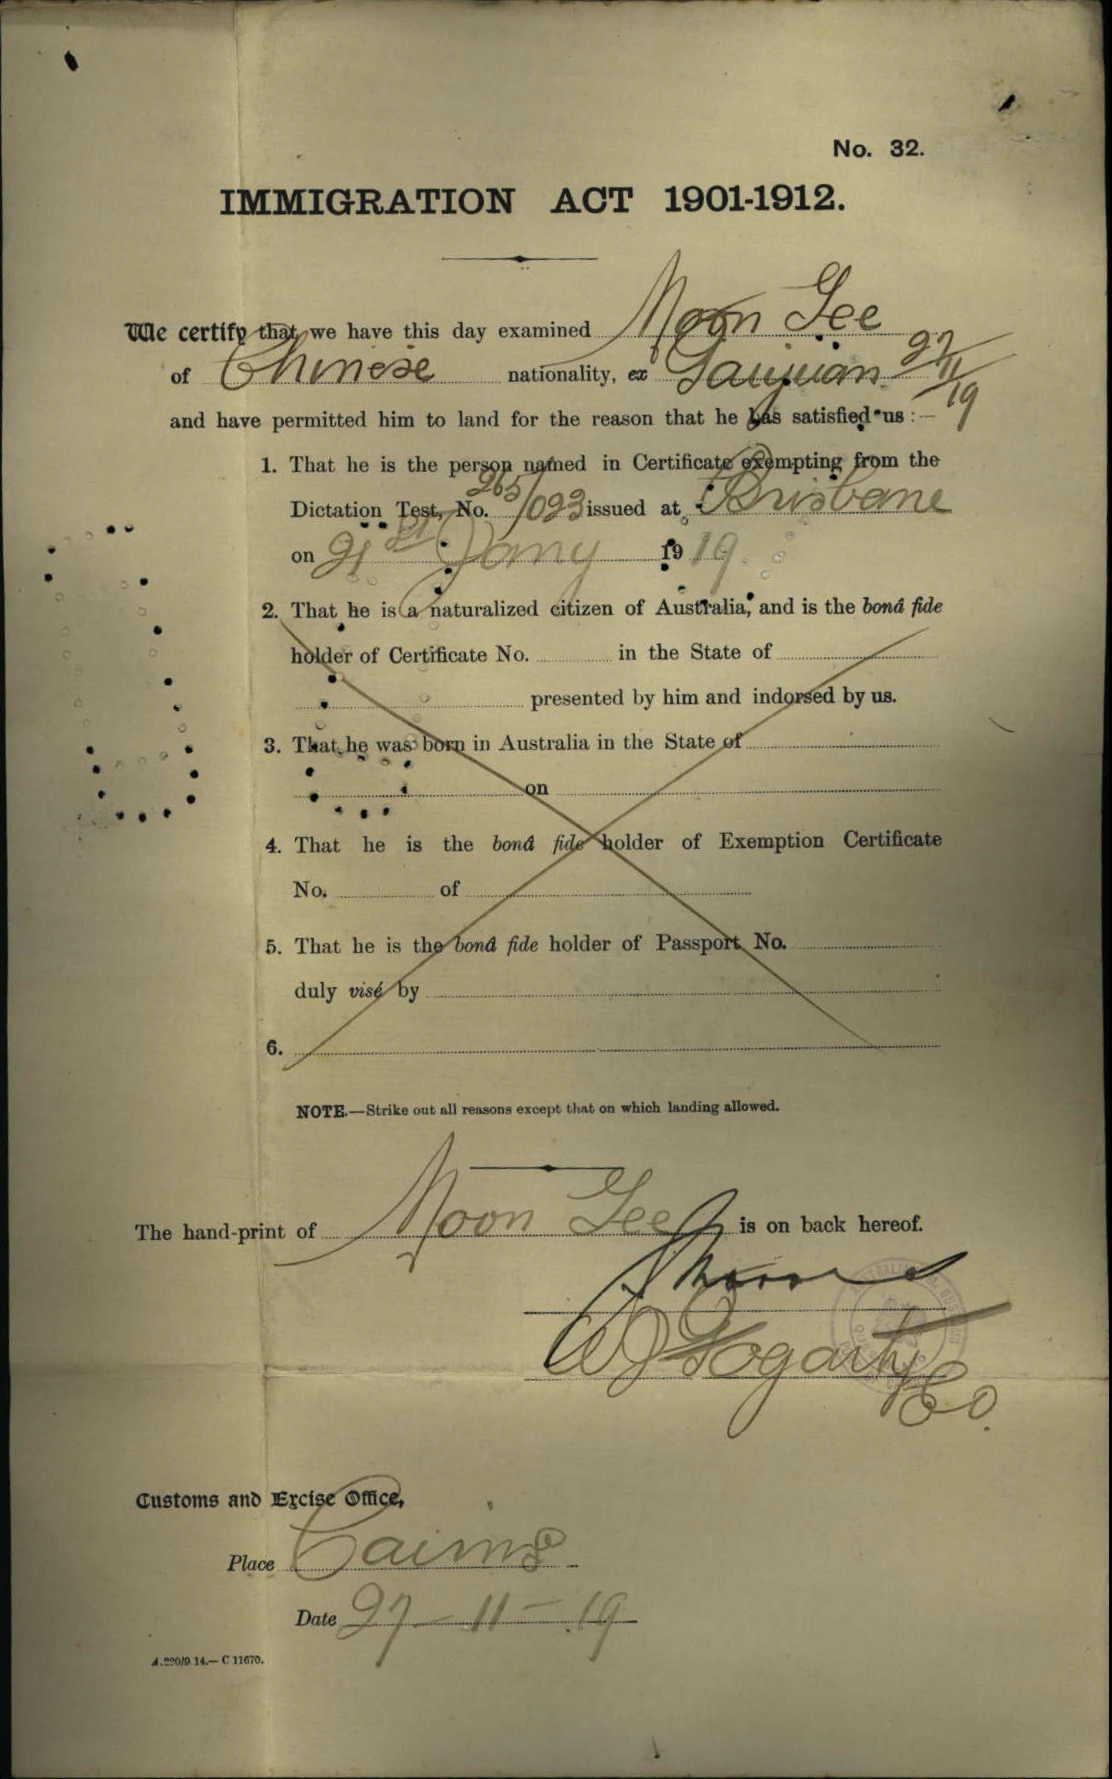 No. 32.
IMMIGRATION ACT 1901-1912.
We certify that we have this day examined Moon Gee
of Chinese nationality, ex Taiyuan 27/11/19
and have permitted him to land for the reason that he has satisfied us :—
1. That he is the person named in Certificate exempting from the
Dictation Test, No. 265/023 issued at Brisbane
on 21st Jany 1919.
2. That he is a naturalized citizen of Australia, and is the bonâ fide
holder of Certificate No. in the State of
presented by him and indorsed by us.
3. That he was born in Australia in the State of
on
4. That he is the bonâ fide holder of Exemption Certificate
No. of
5. That he is the bonâ fide holder of Passport No.
duly visé by
6.
NOTE.—Strike out all reasons except that on which landing allowed.
The hand-print of Moon Gee is on back hereof.
Fogarty
Customs and Excise Office,
Place Cairns
Date 27-11-19
A.220/9.14.—C 11670.